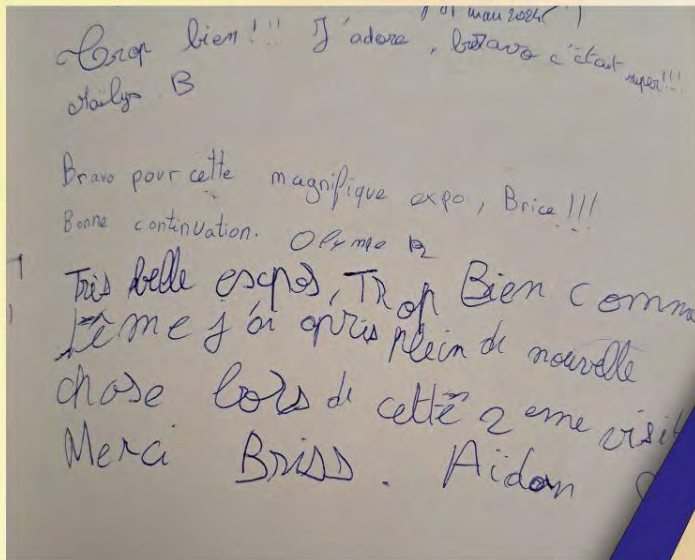 mars 2024 )
Trop bien!!! J'adore, bravo c'était super!!!
Maïlys B
Bravo pour cette magnifique expo, Brice!!!
Bonne continuation. Olympe
Très belle expos, TRop Bien comme
j'ai appris plein de nouvelle
chose lors de cette 2 eme visit
Merci Briss. Aïdan